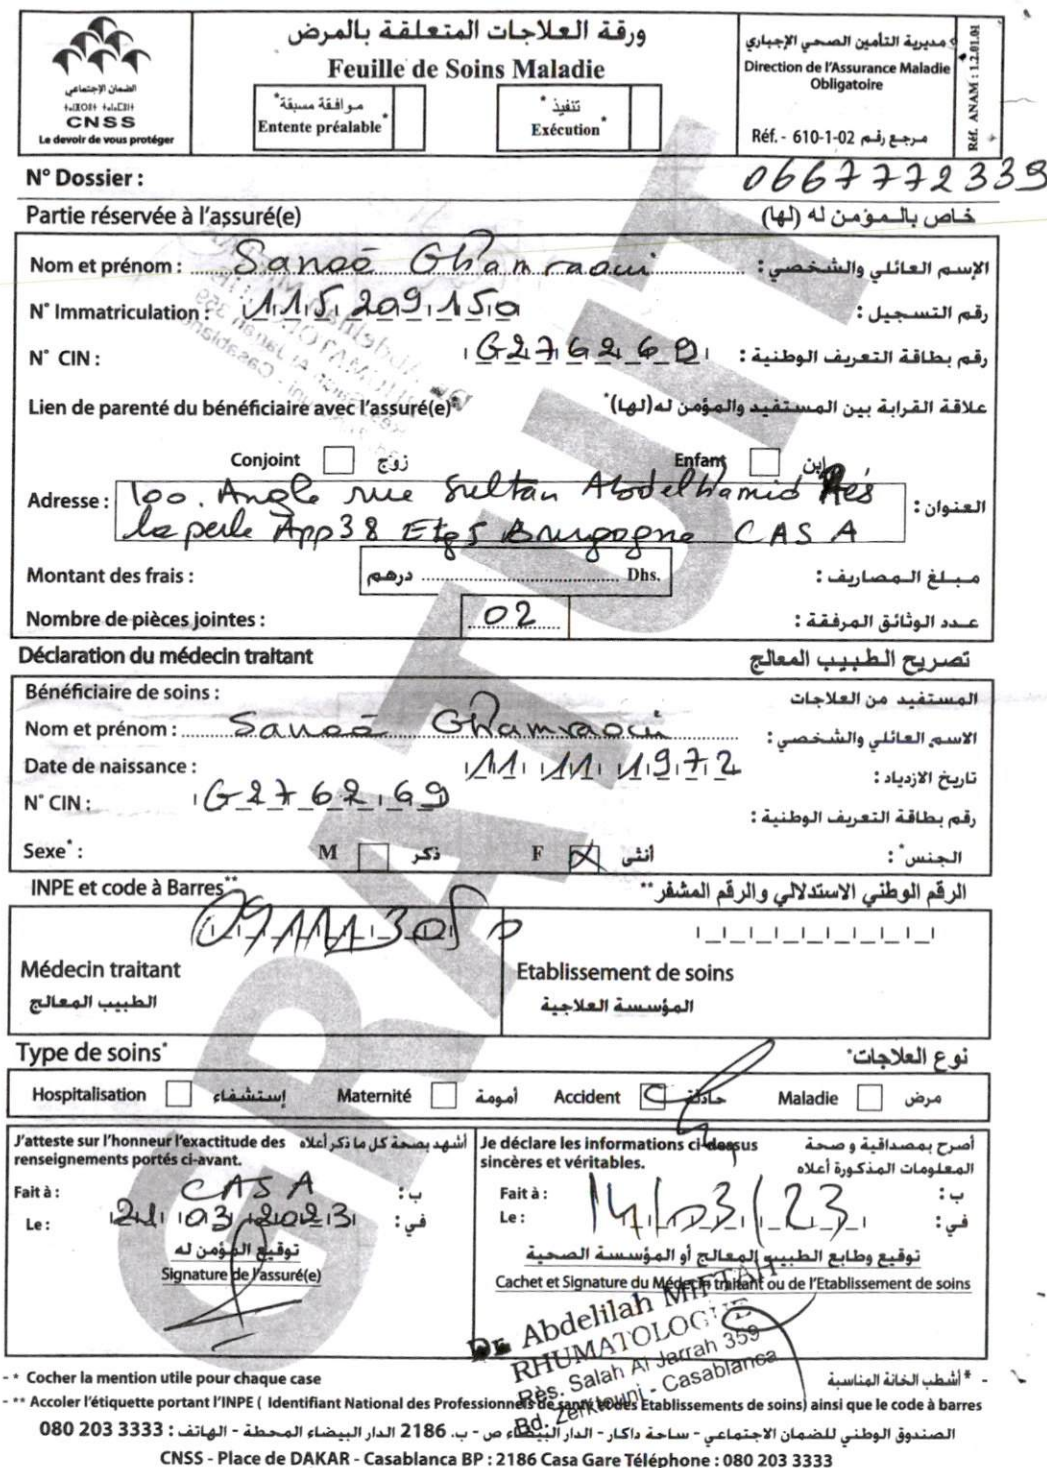 الضمان الإجتماعي
CNSS
Le devoir de vous protéger
ورقة العلاجات المتعلقة بالمرض
Feuille de Soins Maladie
موافقة مسبقة*
Entente préalable*
تنفيذ*
Exécution*
مديرية التأمين الصحي الإجباري
Direction de l'Assurance Maladie
Obligatoire
Réf. - 610-1-02 مرجع رقم
Réf. ANAM : 1.2.01.01
N° Dossier : 0667772339
Partie réservée à l'assuré(e) خاص بالمؤمن له (لها)
Nom et prénom : Sanaā Ghamraoui الإسم العائلي والشخصي :
N° Immatriculation : 115209150 رقم التسجيل :
N° CIN : G276269 رقم بطاقة التعريف الوطنية :
Lien de parenté du bénéficiaire avec l'assuré(e)* علاقة القرابة بين المستفيد والمؤمن له(لها)*
Conjoint زوج Enfant إبن
Adresse : 100. Angle rue Sultan Abdelhamid Rés العنوان :
la perle App 38 Etg 5 Bourgogne CASA
Montant des frais : درهم Dhs. مبلغ المصاريف :
Nombre de pièces jointes : 02 عدد الوثائق المرفقة :
Déclaration du médecin traitant تصريح الطبيب المعالج
Bénéficiaire de soins : المستفيد من العلاجات
Nom et prénom : Sanaā Ghamraoui الاسم العائلي والشخصي :
Date de naissance : 11 11 1972 تاريخ الازدياد :
N° CIN : G276269 رقم بطاقة التعريف الوطنية :
Sexe* : M ذكر F أنثى الجنس* :
INPE et code à Barres** الرقم الوطني الاستدلالي والرقم المشفر**
Médecin traitant Etablissement de soins
الطبيب المعالج المؤسسة العلاجية
Type de soins* نوع العلاجات*
Hospitalisation إستشفاء Maternité أمومة Accident حادثة Maladie مرض
J'atteste sur l'honneur l'exactitude des أشهد بصحة كل ما ذكر أعلاه
renseignements portés ci-avant.
Fait à : CASA ب :
Le : 21 03 2023 في :
توقيع المؤمن له
Signature de l'assuré(e)
Je déclare les informations ci-dessus أصرح بمصداقية و صحة
sincères et véritables. المعلومات المذكورة أعلاه
Fait à : ب :
Le : 14/03/23 في :
توقيع وطابع الطبيب المعالج أو المؤسسة الصحية
Cachet et Signature du Médecin traitant ou de l'Etablissement de soins
Dr. Abdelilah MIFTAH
RHUMATOLOGUE
Rès. Salah Al Jarrah 359
Bd. Zerktouni - Casablanca
- * Cocher la mention utile pour chaque case - * أشطب الخانة المناسبة
- ** Accoler l'étiquette portant l'INPE ( Identifiant National des Professionnels de santé et des Etablissements de soins) ainsi que le code à barres
الصندوق الوطني للضمان الاجتماعي - ساحة داكار - الدار البيضاء ص - ب. 2186 الدار البيضاء المحطة - الهاتف : 3333 203 080
CNSS - Place de DAKAR - Casablanca BP : 2186 Casa Gare Téléphone : 080 203 3333
GRATUIT